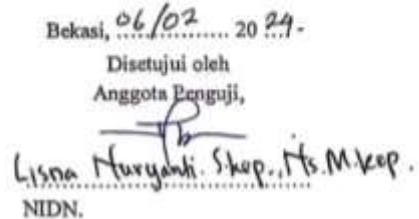 Bekasi, 06/02 2024.
Disetujui oleh
Anggota Penguji,
Lisna Nuryanti. S.kep., Ns. M.kep.
NIDN.